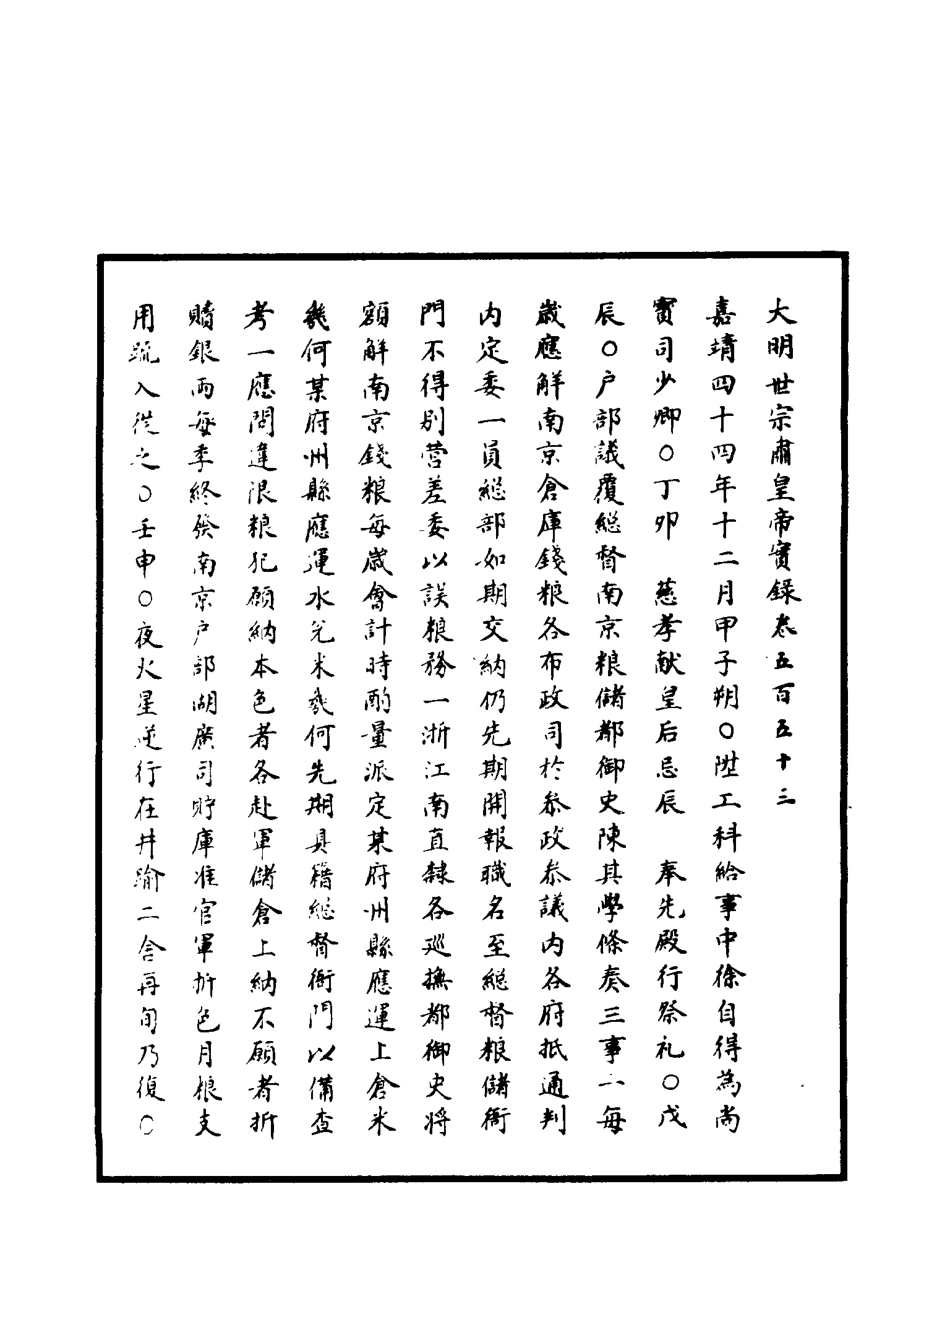 大明世宗肅皇帝實錄卷五百五十三
嘉靖四十四年十二月甲子朔○陞工科給事中徐自得為尚
寶司少卿○丁卯　慈孝献皇后忌辰　奉先殿行祭礼○戊
辰○户部議覆總督南京粮儲都御史陳其學條奏三事一每
歲應解南京倉庫錢粮各布政司於叅政叅議内各府扺通判
内定委一員總部如期交納仍先期開報職名至總督粮儲衙
門不得别营差委以誤粮務一浙江南直隸各巡撫都御史将
額解南京錢粮每歲會計時酌量派定某府州縣應運上倉米
幾何某府州縣應運水兌米幾何先期具籍總督衙門以備查
考一應問違限粮犯願納本色者各赴軍儲倉上納不願者折
贖銀两每季終發南京户部湖廣司貯庫准官軍折色月粮支
用疏入從之○壬申○夜火星逆行在井踰二舍再旬乃復○